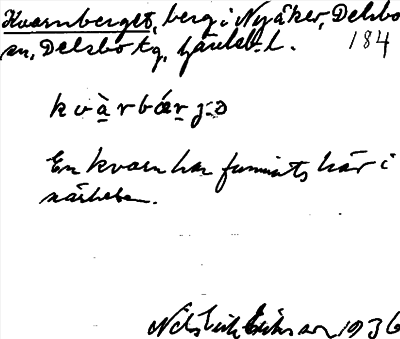 Kvarnberget, berg i Nyåker, Delsbo
sn, Delsbo tg, Gävleb. l. 184
kvàrbæ̀rjə
En kvarn har funnits här i
närheten.
Nils Erik Eriksson 1936